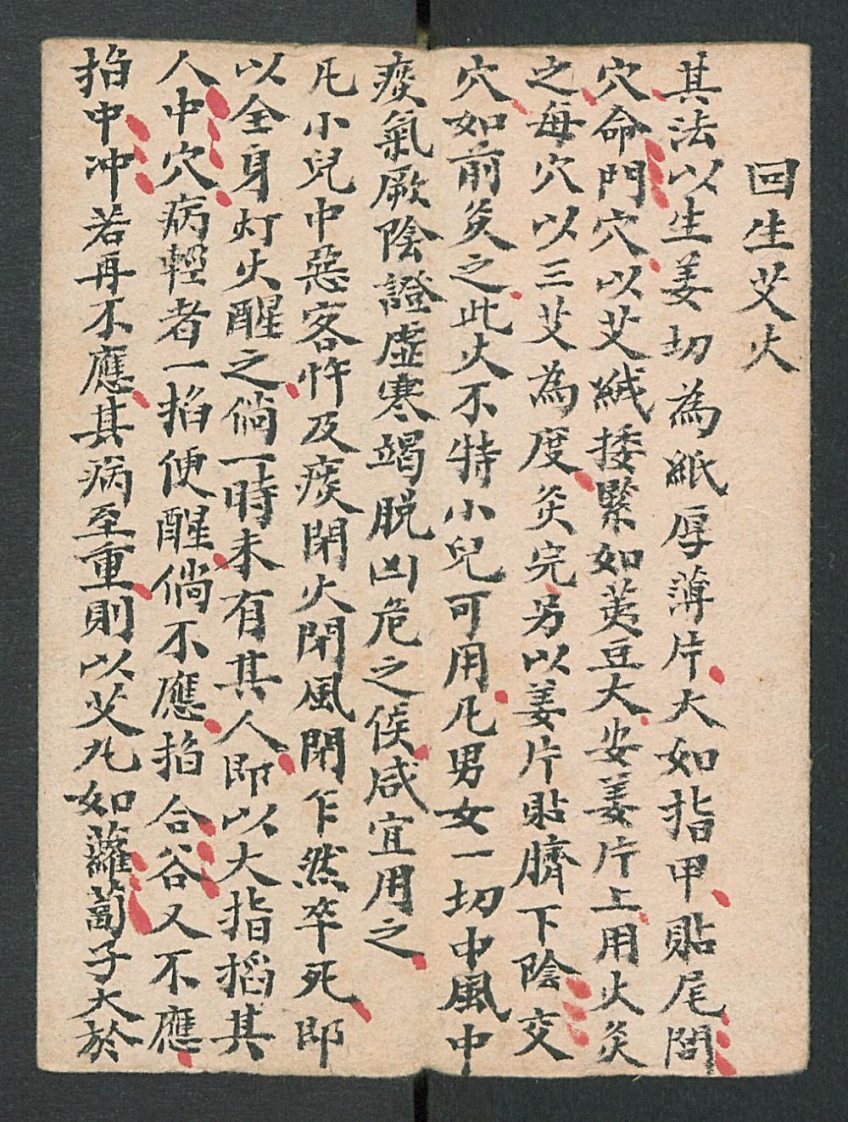 回生艾火
其法以生姜切為紙厚薄片大如指甲貼尾閭
穴命門穴以艾絨捼緊如荑豆大安姜片上用火灸
之每穴以三艾為度灸完另以姜片貼臍下陰交
穴如前灸之此火不特小兒可用凡男女一切中風中
痰氣厥陰證虛寒竭脱凶危之候咸宜用之
凡小兒中惡客忤及痰閉火閉風閉乍然卒死即
以全身灯火醒之倘一時未有其人即以大指搯其
人中穴病輕者一掐便醒倘不應掐合谷又不應
掐中冲若再不應其病至重則以艾丸如蘿蔔子大於